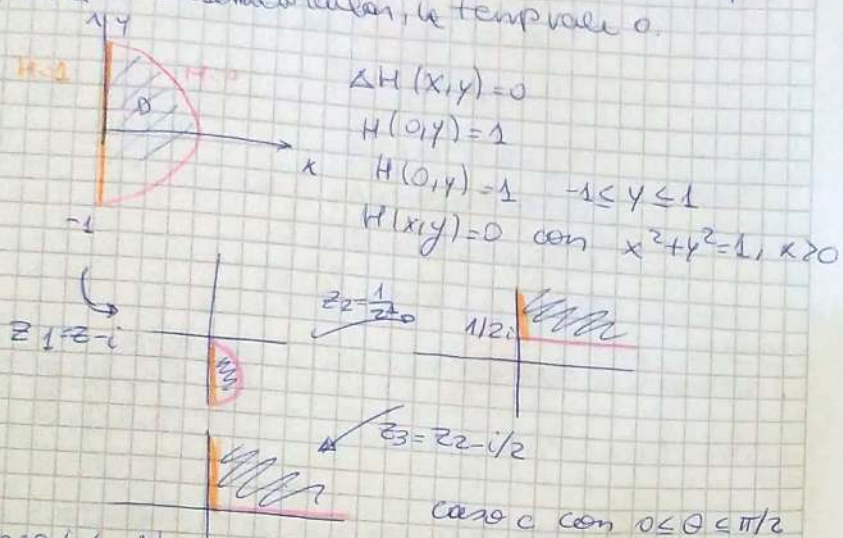 temprale 0.
1 y
H=1
D
ΔH(x,y)=0
H(0,y)=1
x
H(0,y)=1 -1≤y≤1
-1
H(x,y)=0 con x²+y²=1, x>0
z1=z-i
1/2i
z3=z2-i/2
caso c con 0≤θ≤π/2